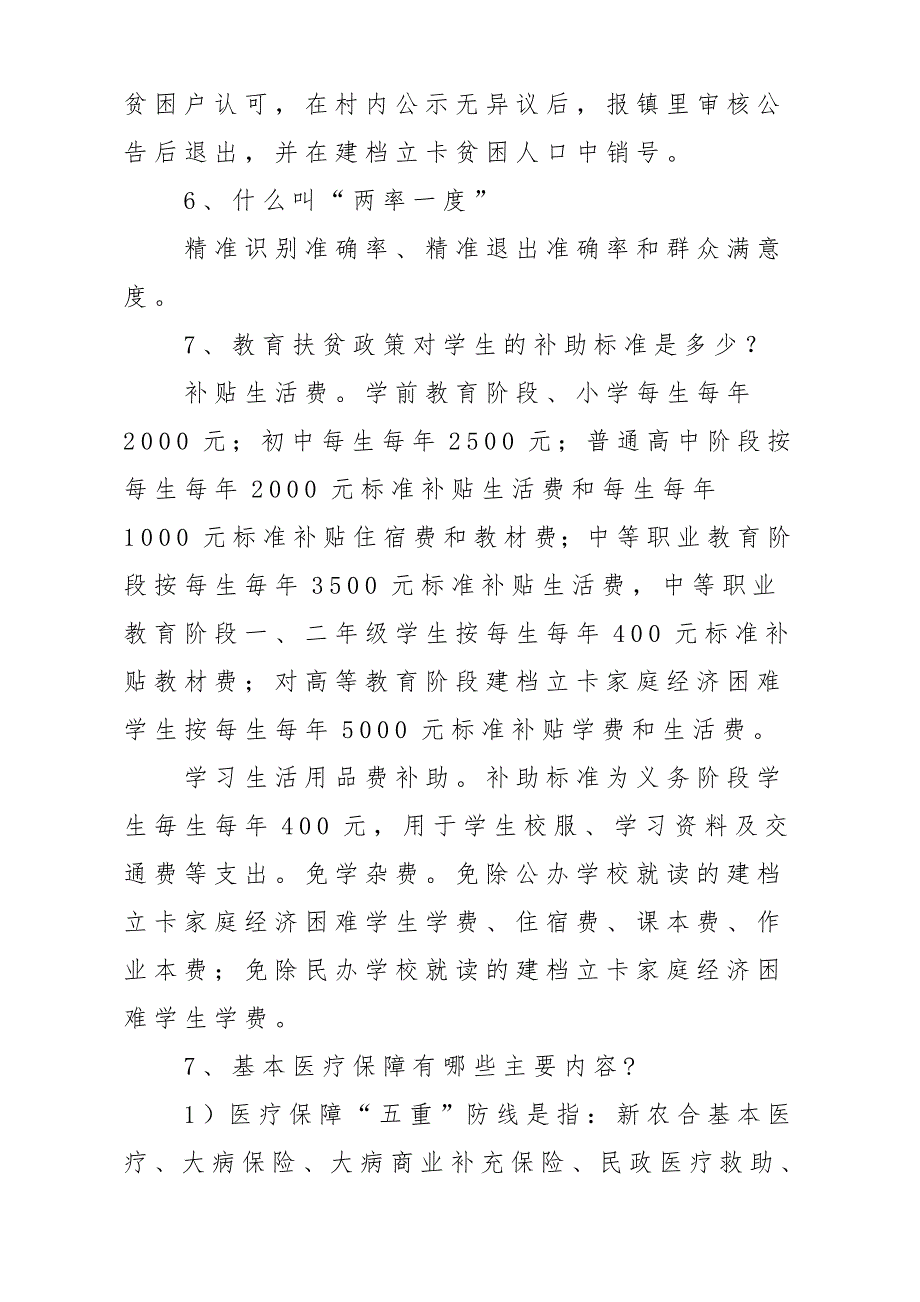 贫困户认可，在村内公示无异议后，报镇里审核公
告后退出，并在建档立卡贫困人口中销号。
6、什么叫“两率一度”
精准识别准确率、精准退出准确率和群众满意
度。
7、教育扶贫政策对学生的补助标准是多少？
补贴生活费。学前教育阶段、小学每生每年
2000 元；初中每生每年 2500 元；普通高中阶段按
每生每年 2000 元标准补贴生活费和每生每年
1000 元标准补贴住宿费和教材费；中等职业教育阶
段按每生每年 3500 元标准补贴生活费，中等职业
教育阶段一、二年级学生按每生每年 400 元标准补
贴教材费；对高等教育阶段建档立卡家庭经济困难
学生按每生每年 5000 元标准补贴学费和生活费。
学习生活用品费补助。补助标准为义务阶段学
生每生每年 400 元，用于学生校服、学习资料及交
通费等支出。免学杂费。免除公办学校就读的建档
立卡家庭经济困难学生学费、住宿费、课本费、作
业本费；免除民办学校就读的建档立卡家庭经济困
难学生学费。
7、基本医疗保障有哪些主要内容?
1）医疗保障“五重”防线是指：新农合基本医
疗、大病保险、大病商业补充保险、民政医疗救助、